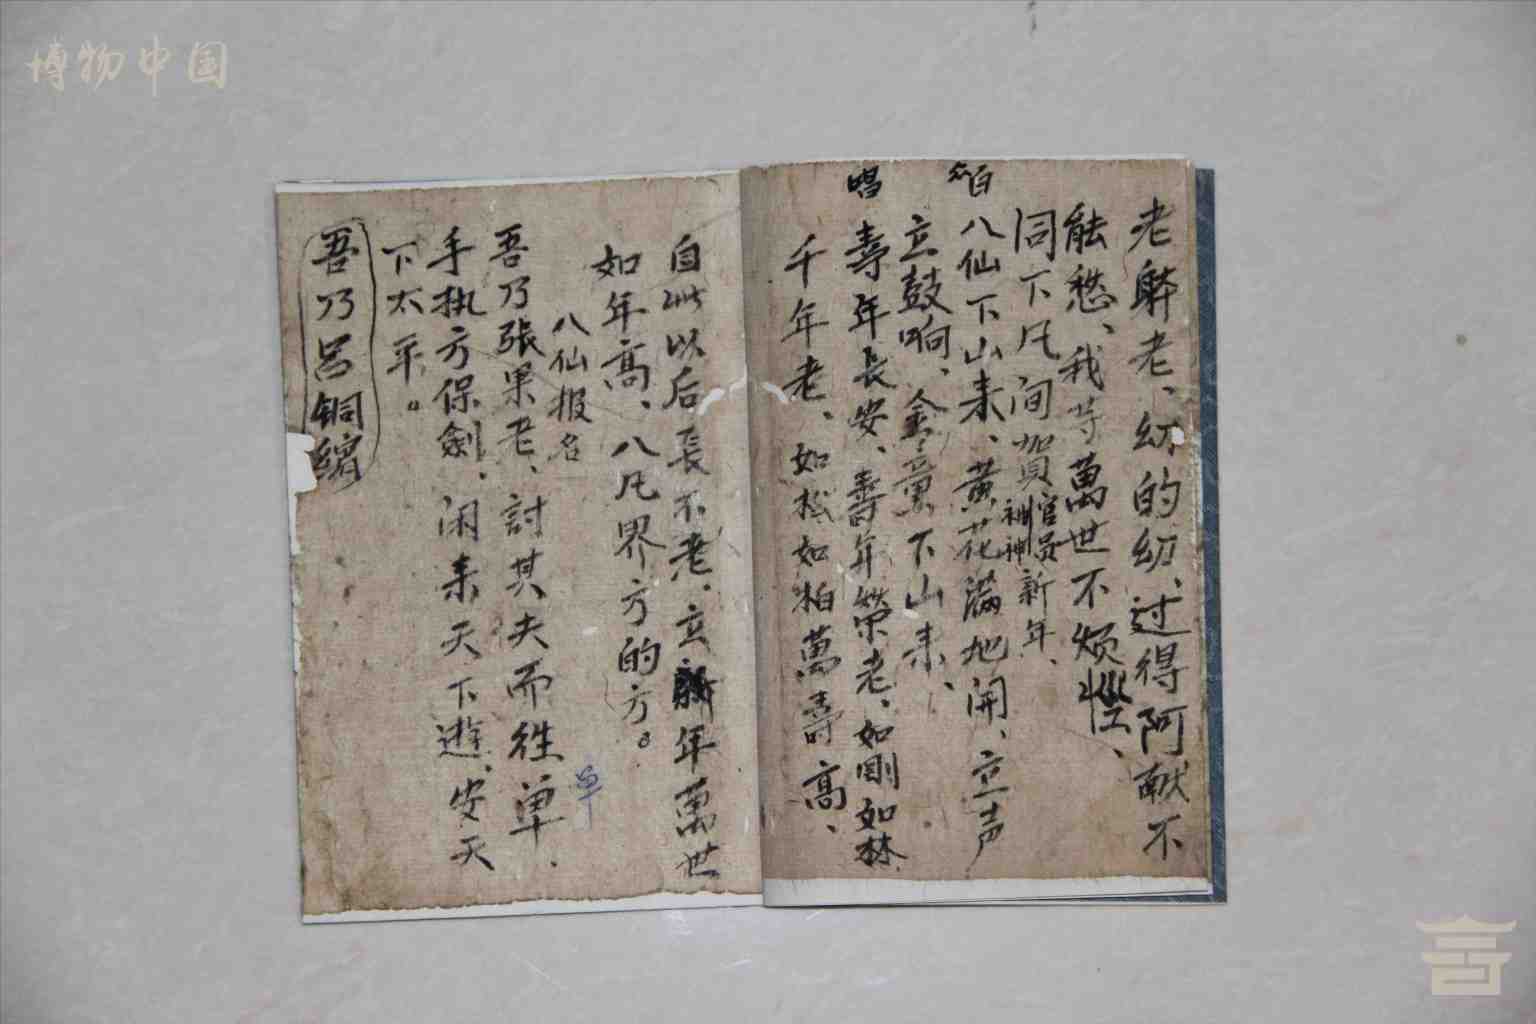 博物中国
老躰老、幼的幼、过得阿献不
能愁、我等萬世不烦惶、
同下凡间賀官员神神新年、
众白
八仙下山来、黄花满地開、立声
立鼓响、金童下山来、
唱
壽年長安、壽年榮老、如剛如林
千年老、如松如柏萬壽高、
自此以后長不老、立新年萬世
如年高、八凡界方的方。
八仙报名
吾乃張果老、討其夫而往单、
单
手执方保劍、闲来天下遊、安天
下太平。
吾乃呂铜縮